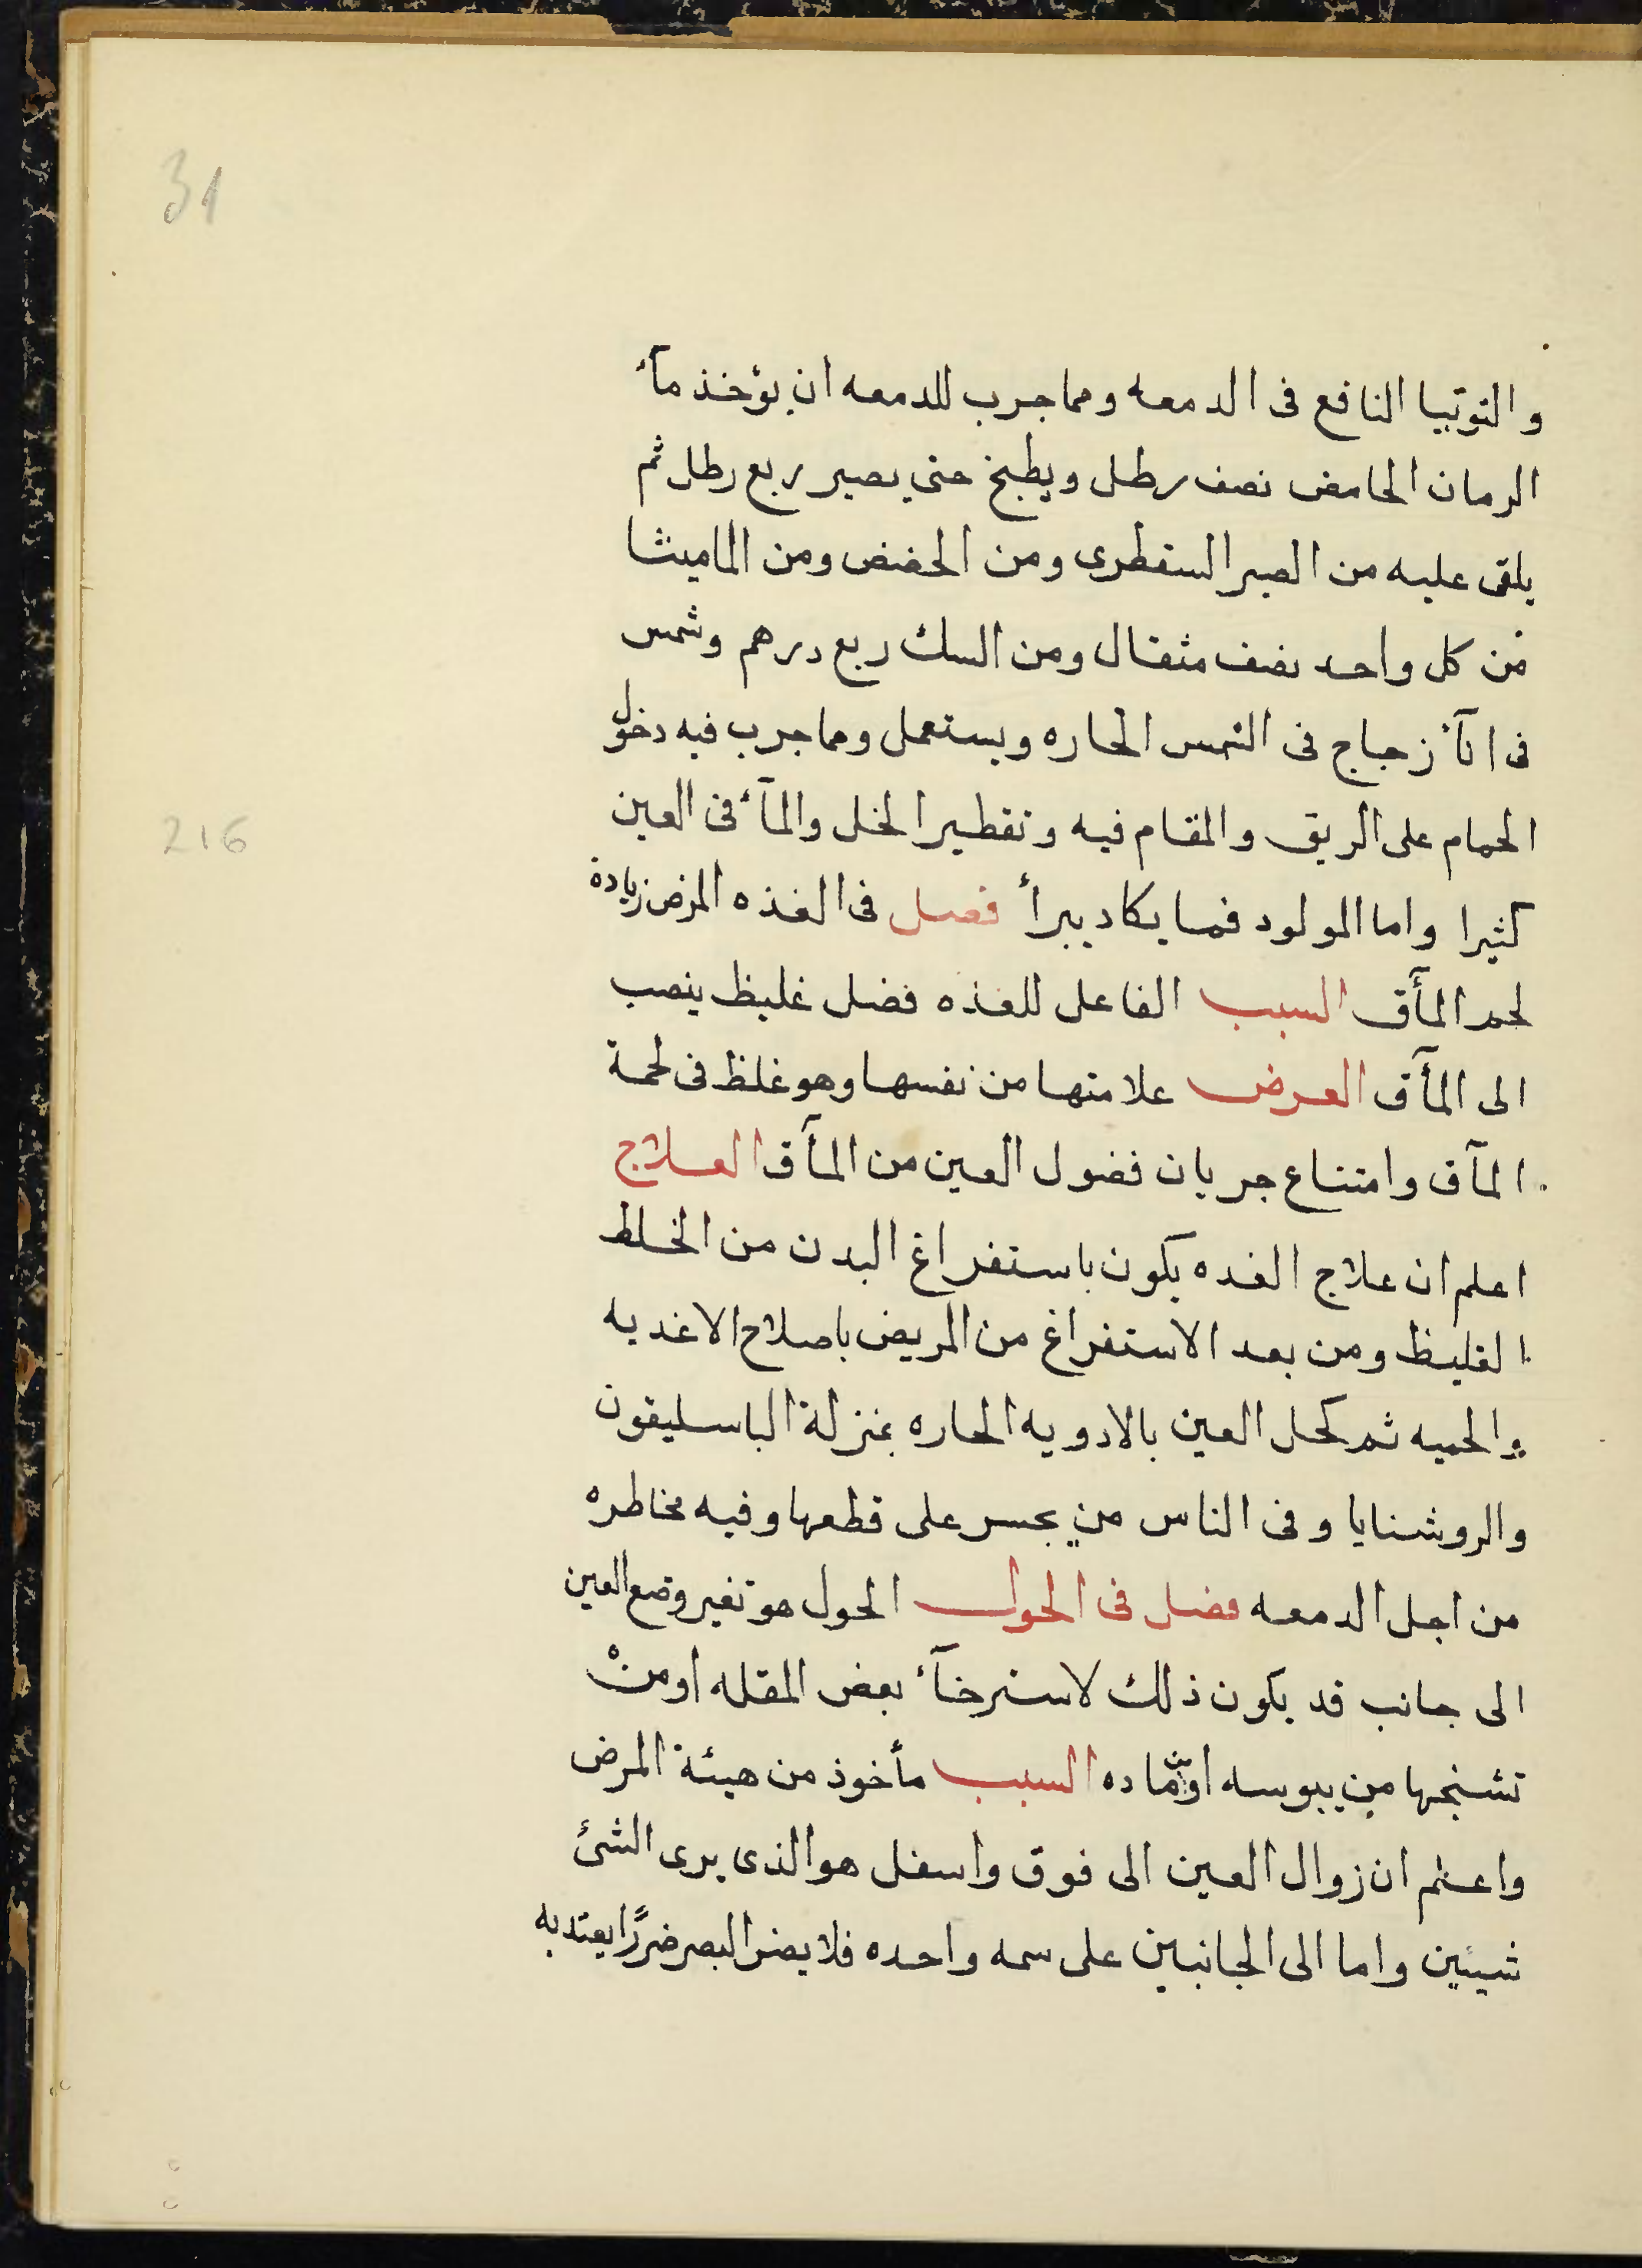 31
والتوتيا النافع فى الدمعه ومما جرب للدمعه ان يؤخذ مآء
الرمان الحامض نصف رطل ويطبخ حتى يصير ربع رطل ثم
يلقى عليه من الصبر السقطرى ومن الحضض ومن الماميثا
من كل واحد نصف مثقال ومن السك ربع درهم وشمس
فى انآء زجاج فى الشمس الحاره ويستعمل ومما جرب فيه دخول
الحمام على الريق والمقام فيه وتقطير الخل والمآء فى العين
كثيرا واما المولود فما يكاد يبرأ فصل فى الغذه المرض زيادة
لحم المأق السبب الفاعل للغذه فضل غليظ ينصب
الى المأق العرض علامتها من نفسها وهو غلظ فى لحمة
المآق وامتناع جريان فضول العين من المأق العلاج
اعلم ان علاج الغده يكون باستفراغ البدن من الخلط
الغليظ ومن بعد الاستفراغ من المريض باصلاح الاغديه
والحميه ثم كحل العين بالادويه الحاره بمنزلة الباسليقون
والروشنايا وفى الناس من يجسر على قطعها وفيه مخاطره
من اجل الدمعه فصل فى الحول الحول هو تغير وضع العين
الى جانب قد يكون ذلك لاسترخآء بعض المقله او من
تشنجها من يبوسه او ماده السبب مأخوذ من هيئة المرض
واعلم ان زوال العين الى فوق واسفل هو الذى يرى الشئ
شيئين واما الى الجانبين على سمه واحده فلا يضر البصر ضررًا يعتد به
216